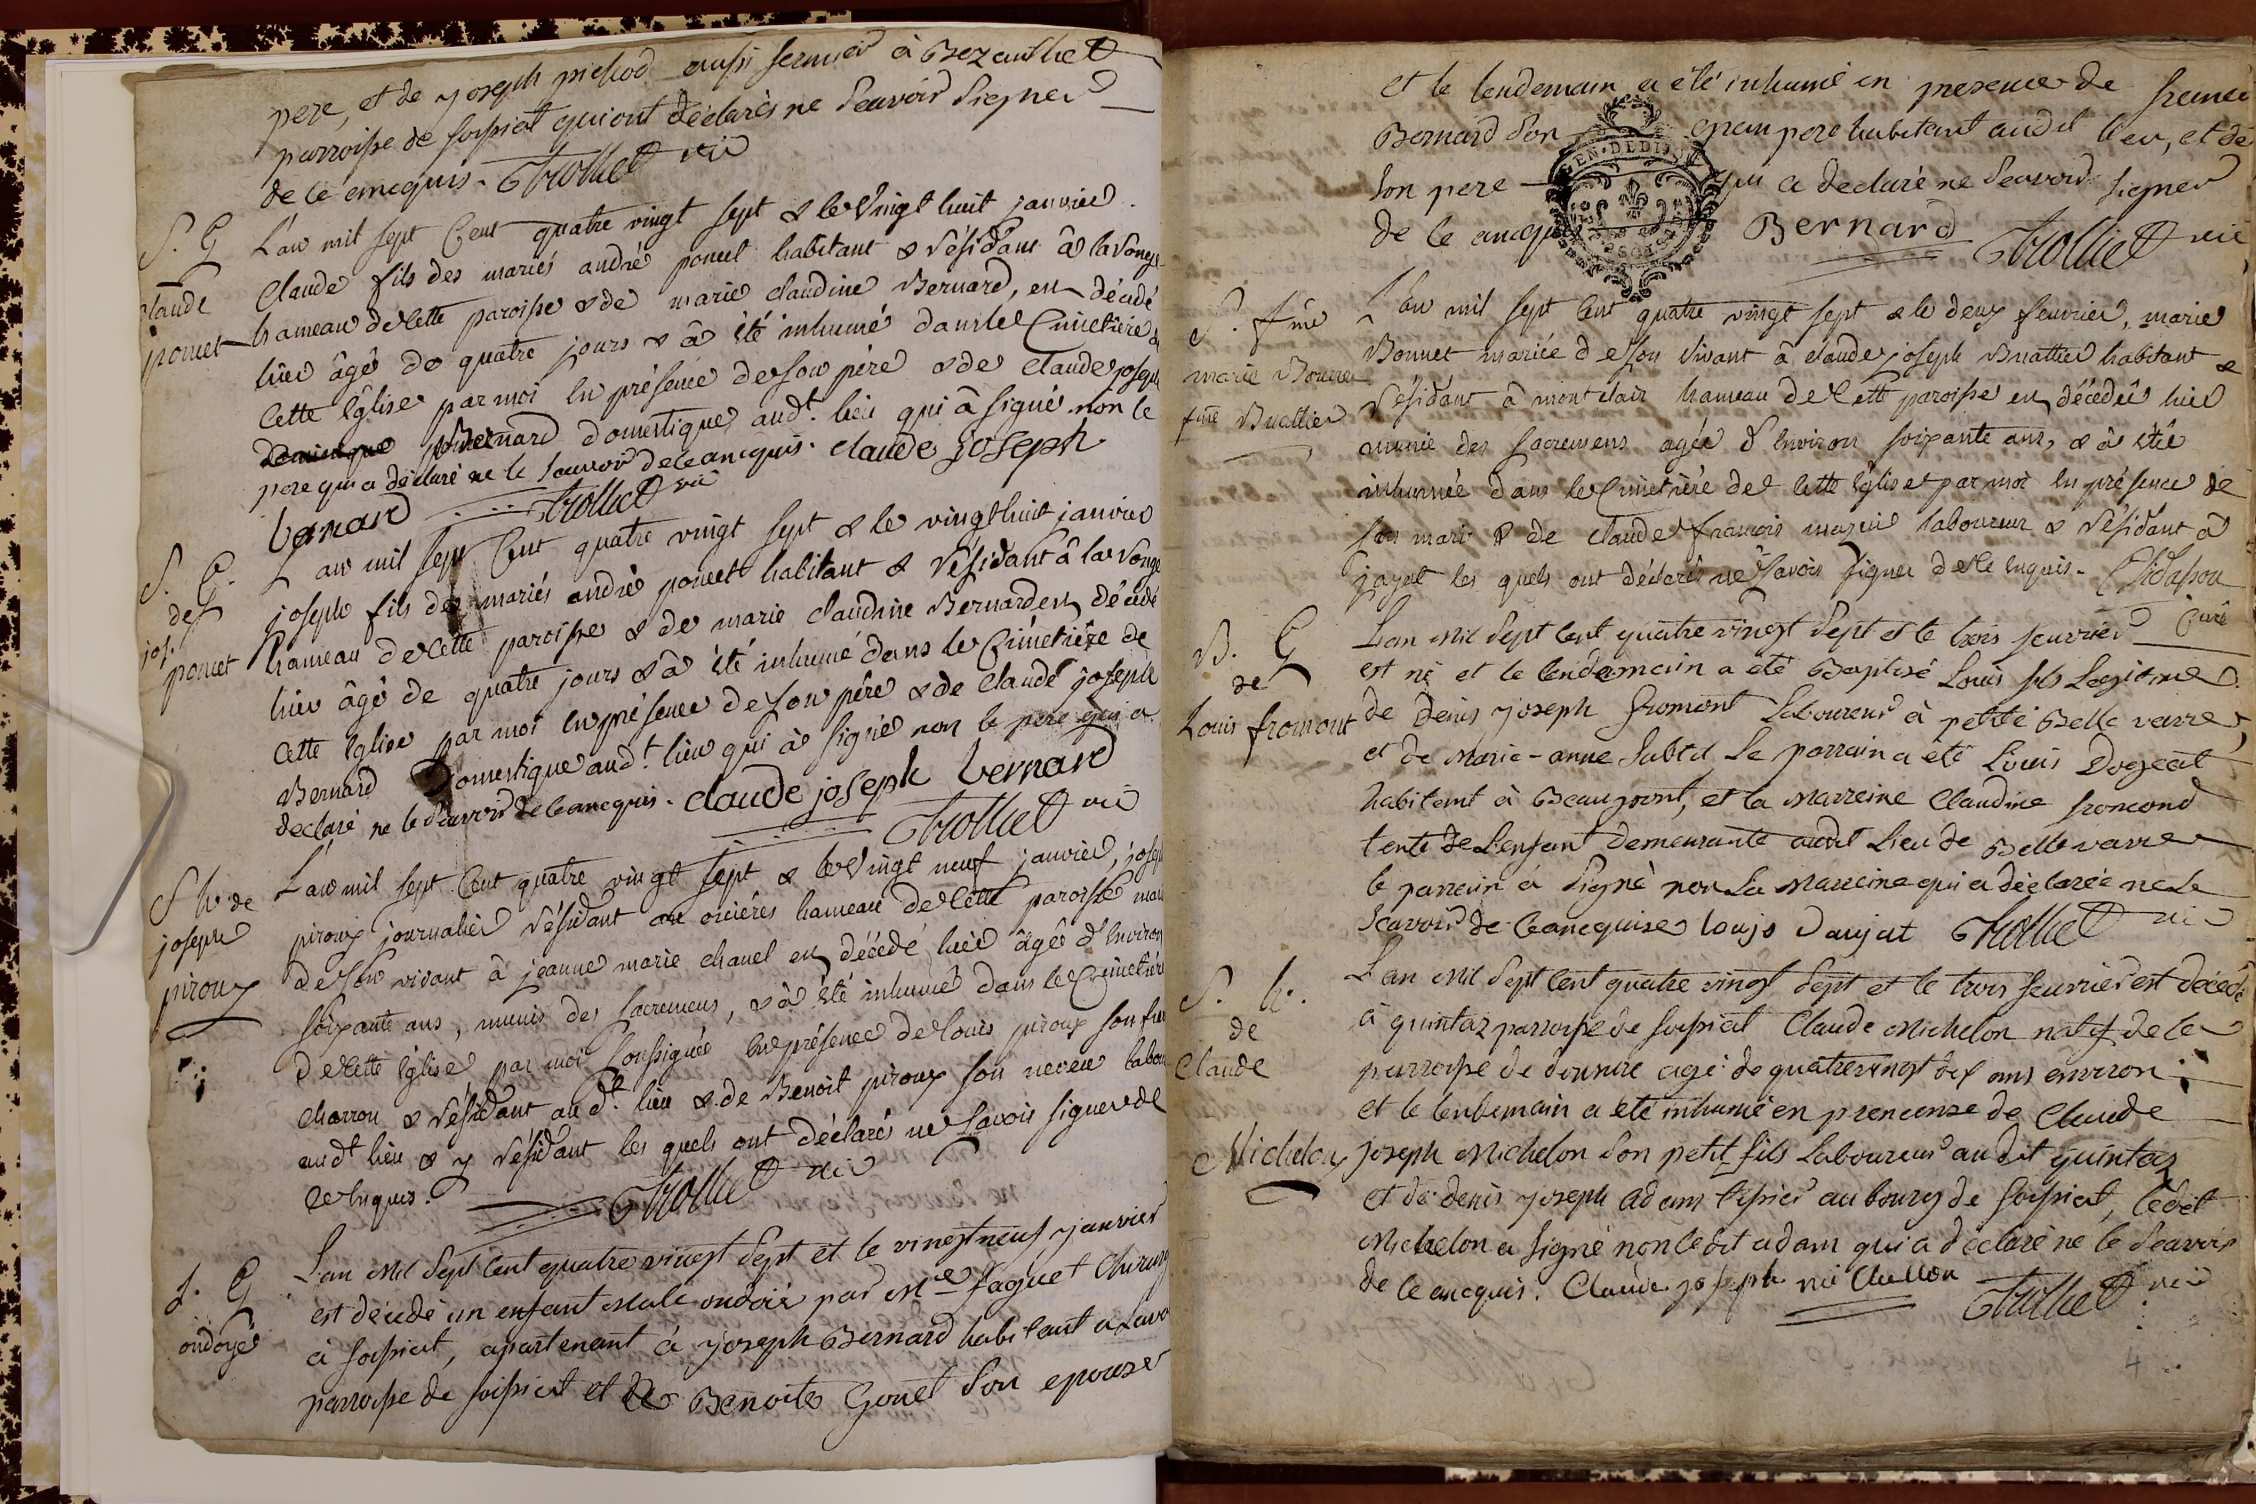 pere, et de joseph pichod aussi fermier à Bezenthet
parroisse de soissiat qui ont declarès ne sçavoir signer
de ce enequis. Trolliet vic
S. G
Claude
poncet
L'an mil sept Cent quatre vingt sept & le Vingt huit janvier.
Claude fils des mariés andré poncet habitant & résidant â la vonge
hameau de cette paroisse & de marie claudine Bernard, en décédé
hier âgé de quatre jours & â été inhumé dans le Cimetiere de
Cette Eglise par moi En présence de son père & de Claude joseph
Bernard domestique audt. lieu qui â signé non le
pere qui a déclaré ne le sçavoir de ce ancquis. claude joseph
bernard Trolliet vic
S. G.
de
jos.
poncet
L'an mil sept Cent quatre vingt sept & le vingt huit janvier
joseph fils des mariés andré poncet habitant & résidant â la vonge
hameau de cette paroisse & de marie claudine Bernard en décédé
hier âgé de quatre jours & â été inhumé dans le Cimetière de
Cette Eglise par moi En présence de son père & de Claude joseph
Bernard Domestique audt. lieu qui â signé non le pere qui a
declaré ne le sçavoir de ce ancquis. claude joseph bernard
Trolliet vic
S h. de
joseph
piroux
L'an mil sept Cent quatre vingt sept & le Vingt neuf janvier, joseph
piroux journalier résidant au orciéres hameau de Cette paroisse mari
de son vivant à jeanne marie chanel en décédé hier âgé d'Environ
soixante ans, munis des sacremens, & â été inhumé dans le Cimetière
de Cette Eglise par moi soussignée En présence de louis piroux son frere
charron & résidant audt. lieu & de Benoit piroux son neveu labour
audt lieu & y résidant les quels ont déclarés ne savoir signer de
ce Enquis. Trolliet vic
S. G
ondoyé
L'an mil sept cent quatre vingt sept et le vingt neuf janvier
est décédé un enfant male ondoié par Me faguet Chirurg
à soissiat, apartenant à joseph Bernard habitant a Lavo
parroisse de soissiat et de Benoite Gonet son epouse
et le lendemain a été inhumé en presence de
Bernard son gran pere habitant audit lieu, et de
son pere qui a declaré ne sçavoir signer
de ce ancquis Bernard Trolliet vic
EN·DEDI
S. fme
marie Bonnet
fme Buathier
L'an mil sept Cent quatre vingt sept & le deux fevrier, marie
Bonnet mariée de son vivant à claude joseph Buathier habitant &
résidant à mont clair hameau de Cette paroisse en décédée hier
munie des sacremens agée d'Environ soixante ans, & â été
inhumée dans le Cimetière de cette Eglise par moi En présence de
son mari & de claude françois mazuir laboureur & résidant à
jayat les quels ont déclarés ne savoir signer de ce Enquis.
Curé
B. G
de
Louis fromont
L'an mil sept cent quatre vingt sept et le trois feuvrier
est né et le lendemain a eté Baptisé Louis fils Legitime
de denis joseph fromont Laboureur à petite Belle varre,
et de Marie-anne subtil Le parrain a eté Louis Dogeat
habitant à Beaupont, et la Marreine Claudine fromond
tente de L'enfant demeurante audit Lieu de Belle varre
le parrain a signé non La Marreine qui a déclarée ne le
sçavoir de ce ancquise louis daujat Trolliet vic
S. h.
de
Claude
Michelon
L'an mil sept cent quatre vingt sept et le trois feuvrier est décedé
à quintaz parroisse de soissiat Claude Michelon natif de la
parroisse de domsure agé de quatre vingt dix ans environ
et le lendemain a eté inhumé en prencense de Claude
joseph Michelon son petit fils Laboureur audit quintaz
et de denis joseph adam tissier au bourg de soissiat, ledit
Michelon a signé non ledit adam qui a déclaré ne le sçavoir
de ce ancquis. Claude joseph michellon Trolliet vic
4